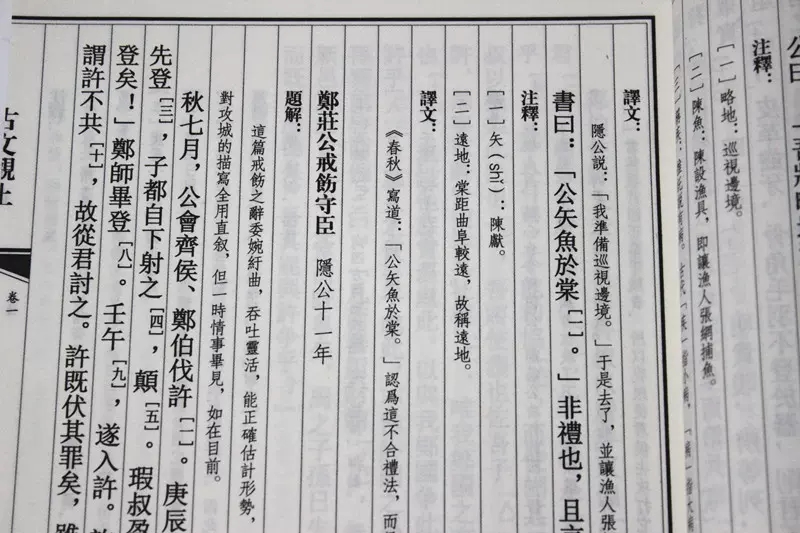 公曰：「吾將略
注釋：
［一］略地：巡視邊境。
［二］陳魚：陳設漁具，即讓漁人張網捕魚。
譯文：
隱公説：「我準備巡視邊境。」于是去了，並讓漁人張
書曰：「公矢魚於棠［一］。」非禮也，且言
注釋：
［一］矢（shǐ）：陳獻。
［二］遠地：棠距曲阜較遠，故稱遠地。
譯文：
《春秋》寫道：「公矢魚於棠。」認爲這不合禮法，而
鄭莊公戒飭守臣　隱公十一年
題解：
這篇戒飭之辭委婉紆曲，吞吐靈活，能正確估計形勢，
對攻城的描寫全用直叙，但一時情事畢見，如在目前。
秋七月，公會齊侯、鄭伯伐許［一］。庚辰
先登［三］，子都自下射之［四］，顛［五］。瑕叔盈
登矣！」鄭師畢登［八］。壬午［九］，遂入許。
謂許不共［十］，故從君討之。許既伏其罪矣，雖
古文觀止
卷一